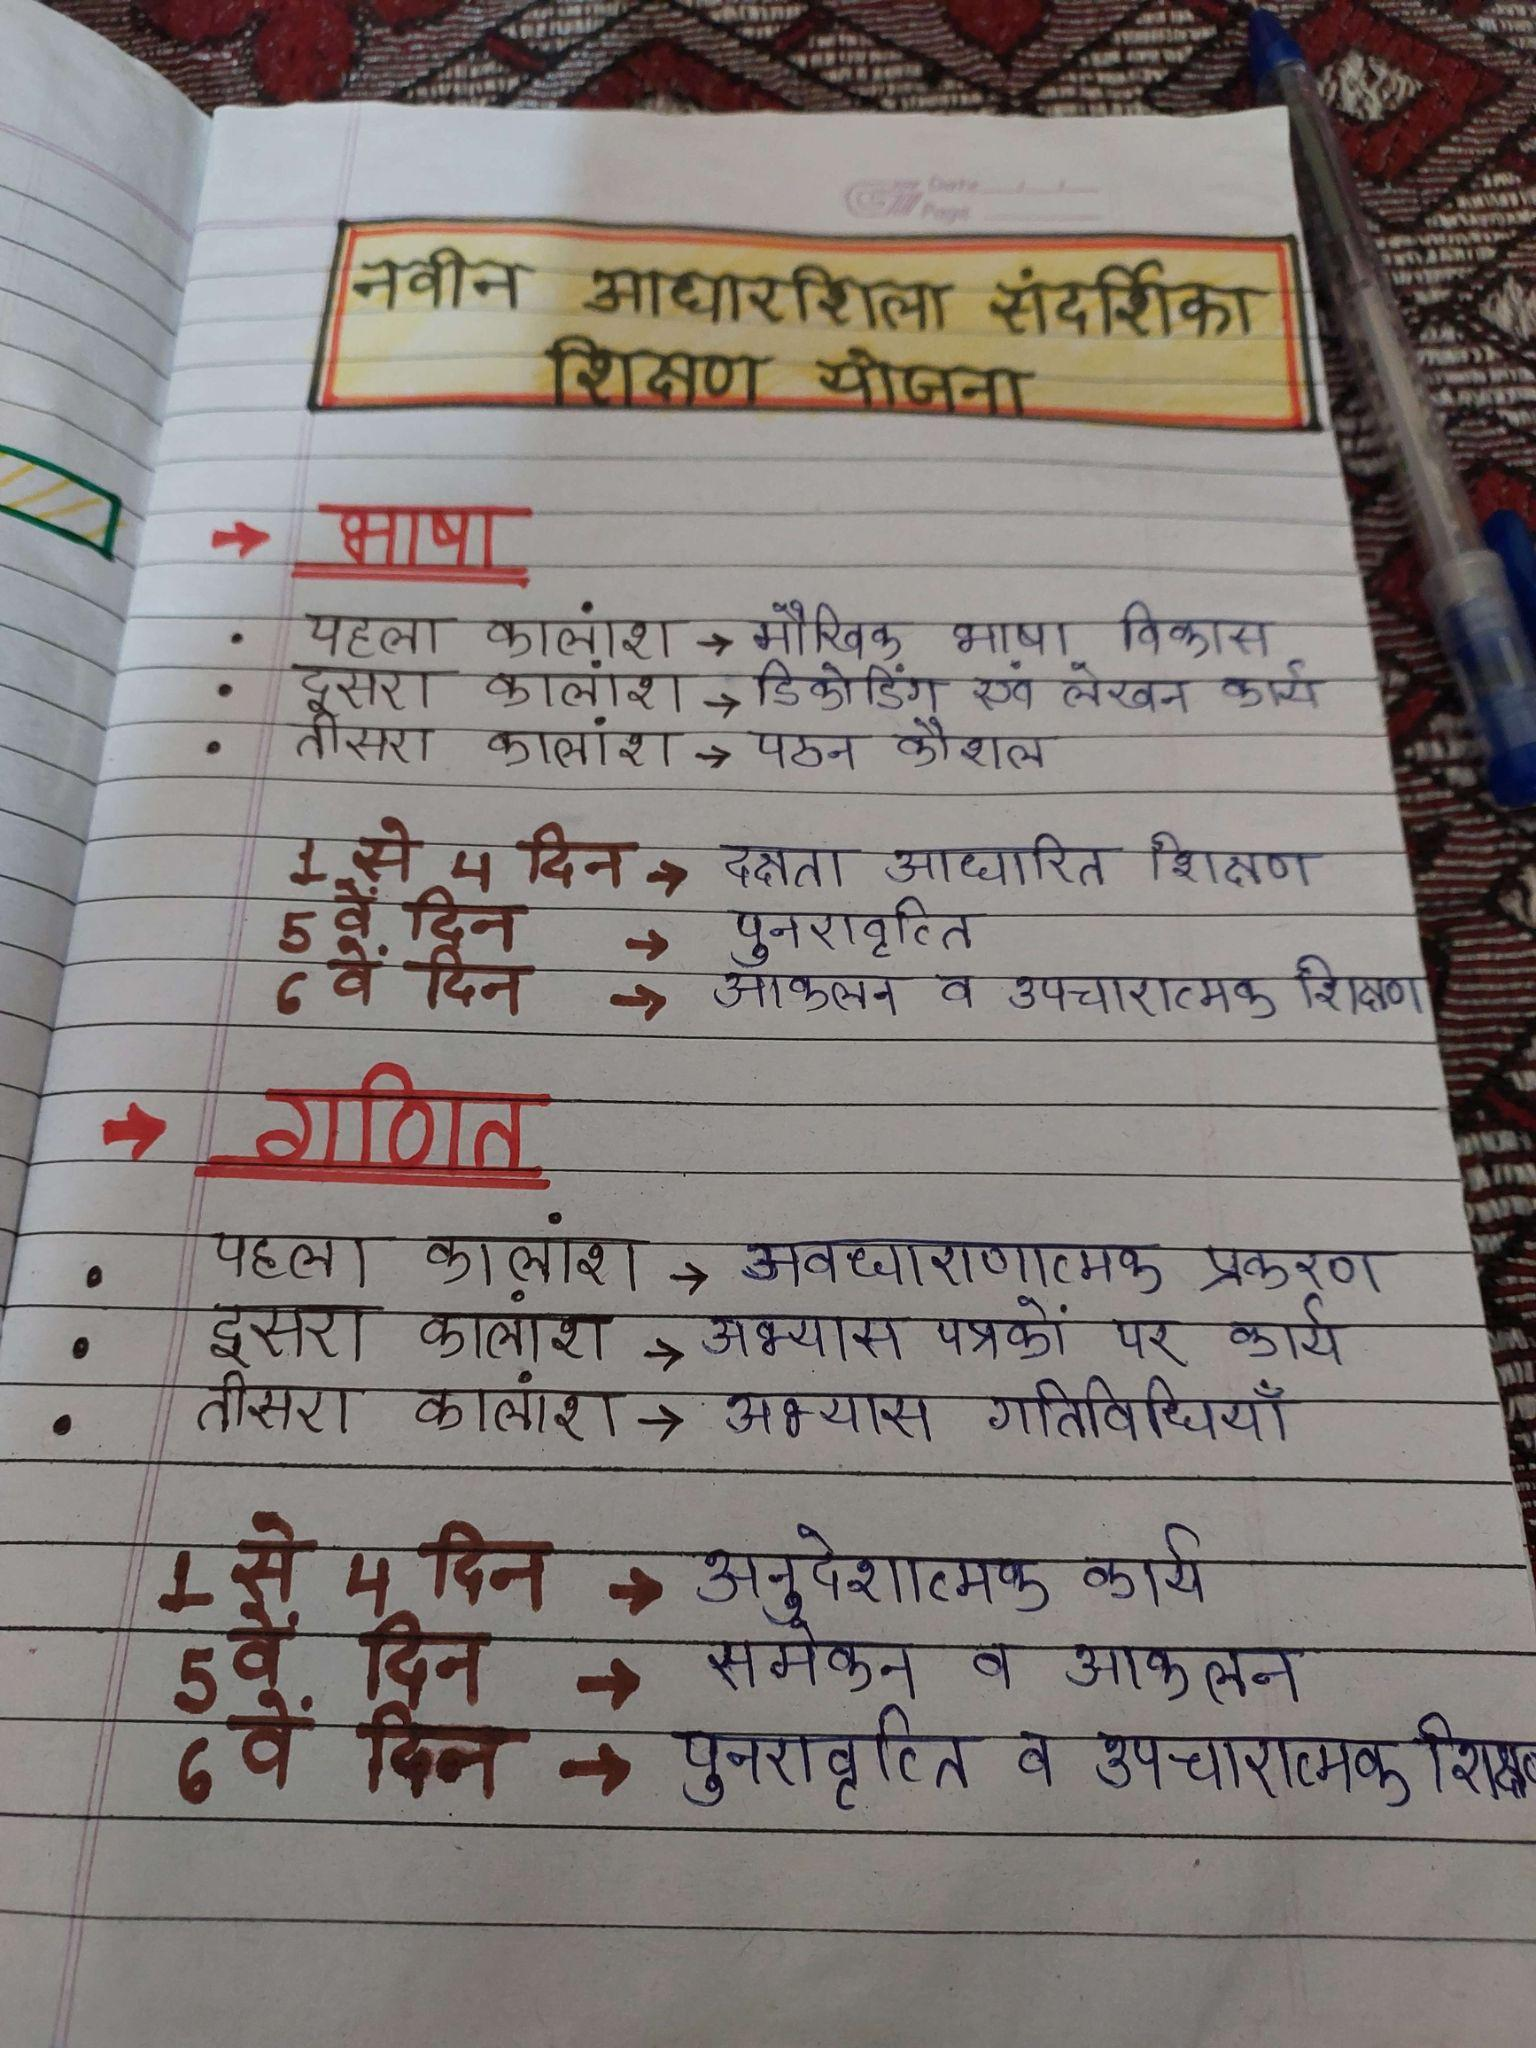 Date
Page
नवीन आधारशिला संदर्शिका
शिक्षण योजना
→ भाषा
• पहला कालांश → मौखिक भाषा विकास
• दूसरा कालांश → डिकोडिंग एवं लेखन कार्य
• तीसरा कालांश → पठन कौशल
1 से 4 दिन → दक्षता आधारित शिक्षण
5 वें दिन → पुनरावृत्ति
6 वें दिन → आकलन व उपचारात्मक शिक्षण
→ गणित
• पहला कालांश → अवधाराणात्मक प्रकरण
• दूसरा कालांश → अभ्यास पत्रकों पर कार्य
• तीसरा कालांश → अभ्यास गतिविधियाँ
1 से 4 दिन → अनुदेशात्मक कार्य
5 वें दिन → समेकन व आकलन
6 वें दिन → पुनरावृत्ति व उपचारात्मक शिक्षण